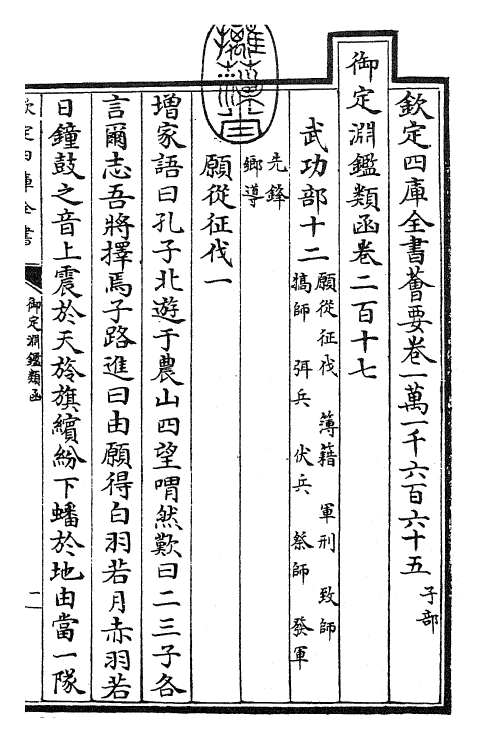 欽定四庫全書薈要卷一萬一千六百六十五 子部
御定淵鑑類函卷二百十七
武功部十二 願從征伐 簿籍 軍刑 致師
犒師 弭兵 伏兵 祭師 發軍
先鋒
鄉導
願從征伐一
增家語曰孔子北遊于農山四望喟然歎曰二三子各
言爾志吾將擇焉子路進曰由願得白羽若月赤羽若
日鐘鼓之音上震於天旍旗繽紛下蟠於地由當一隊
欽定四庫全書
御定淵鑑類函